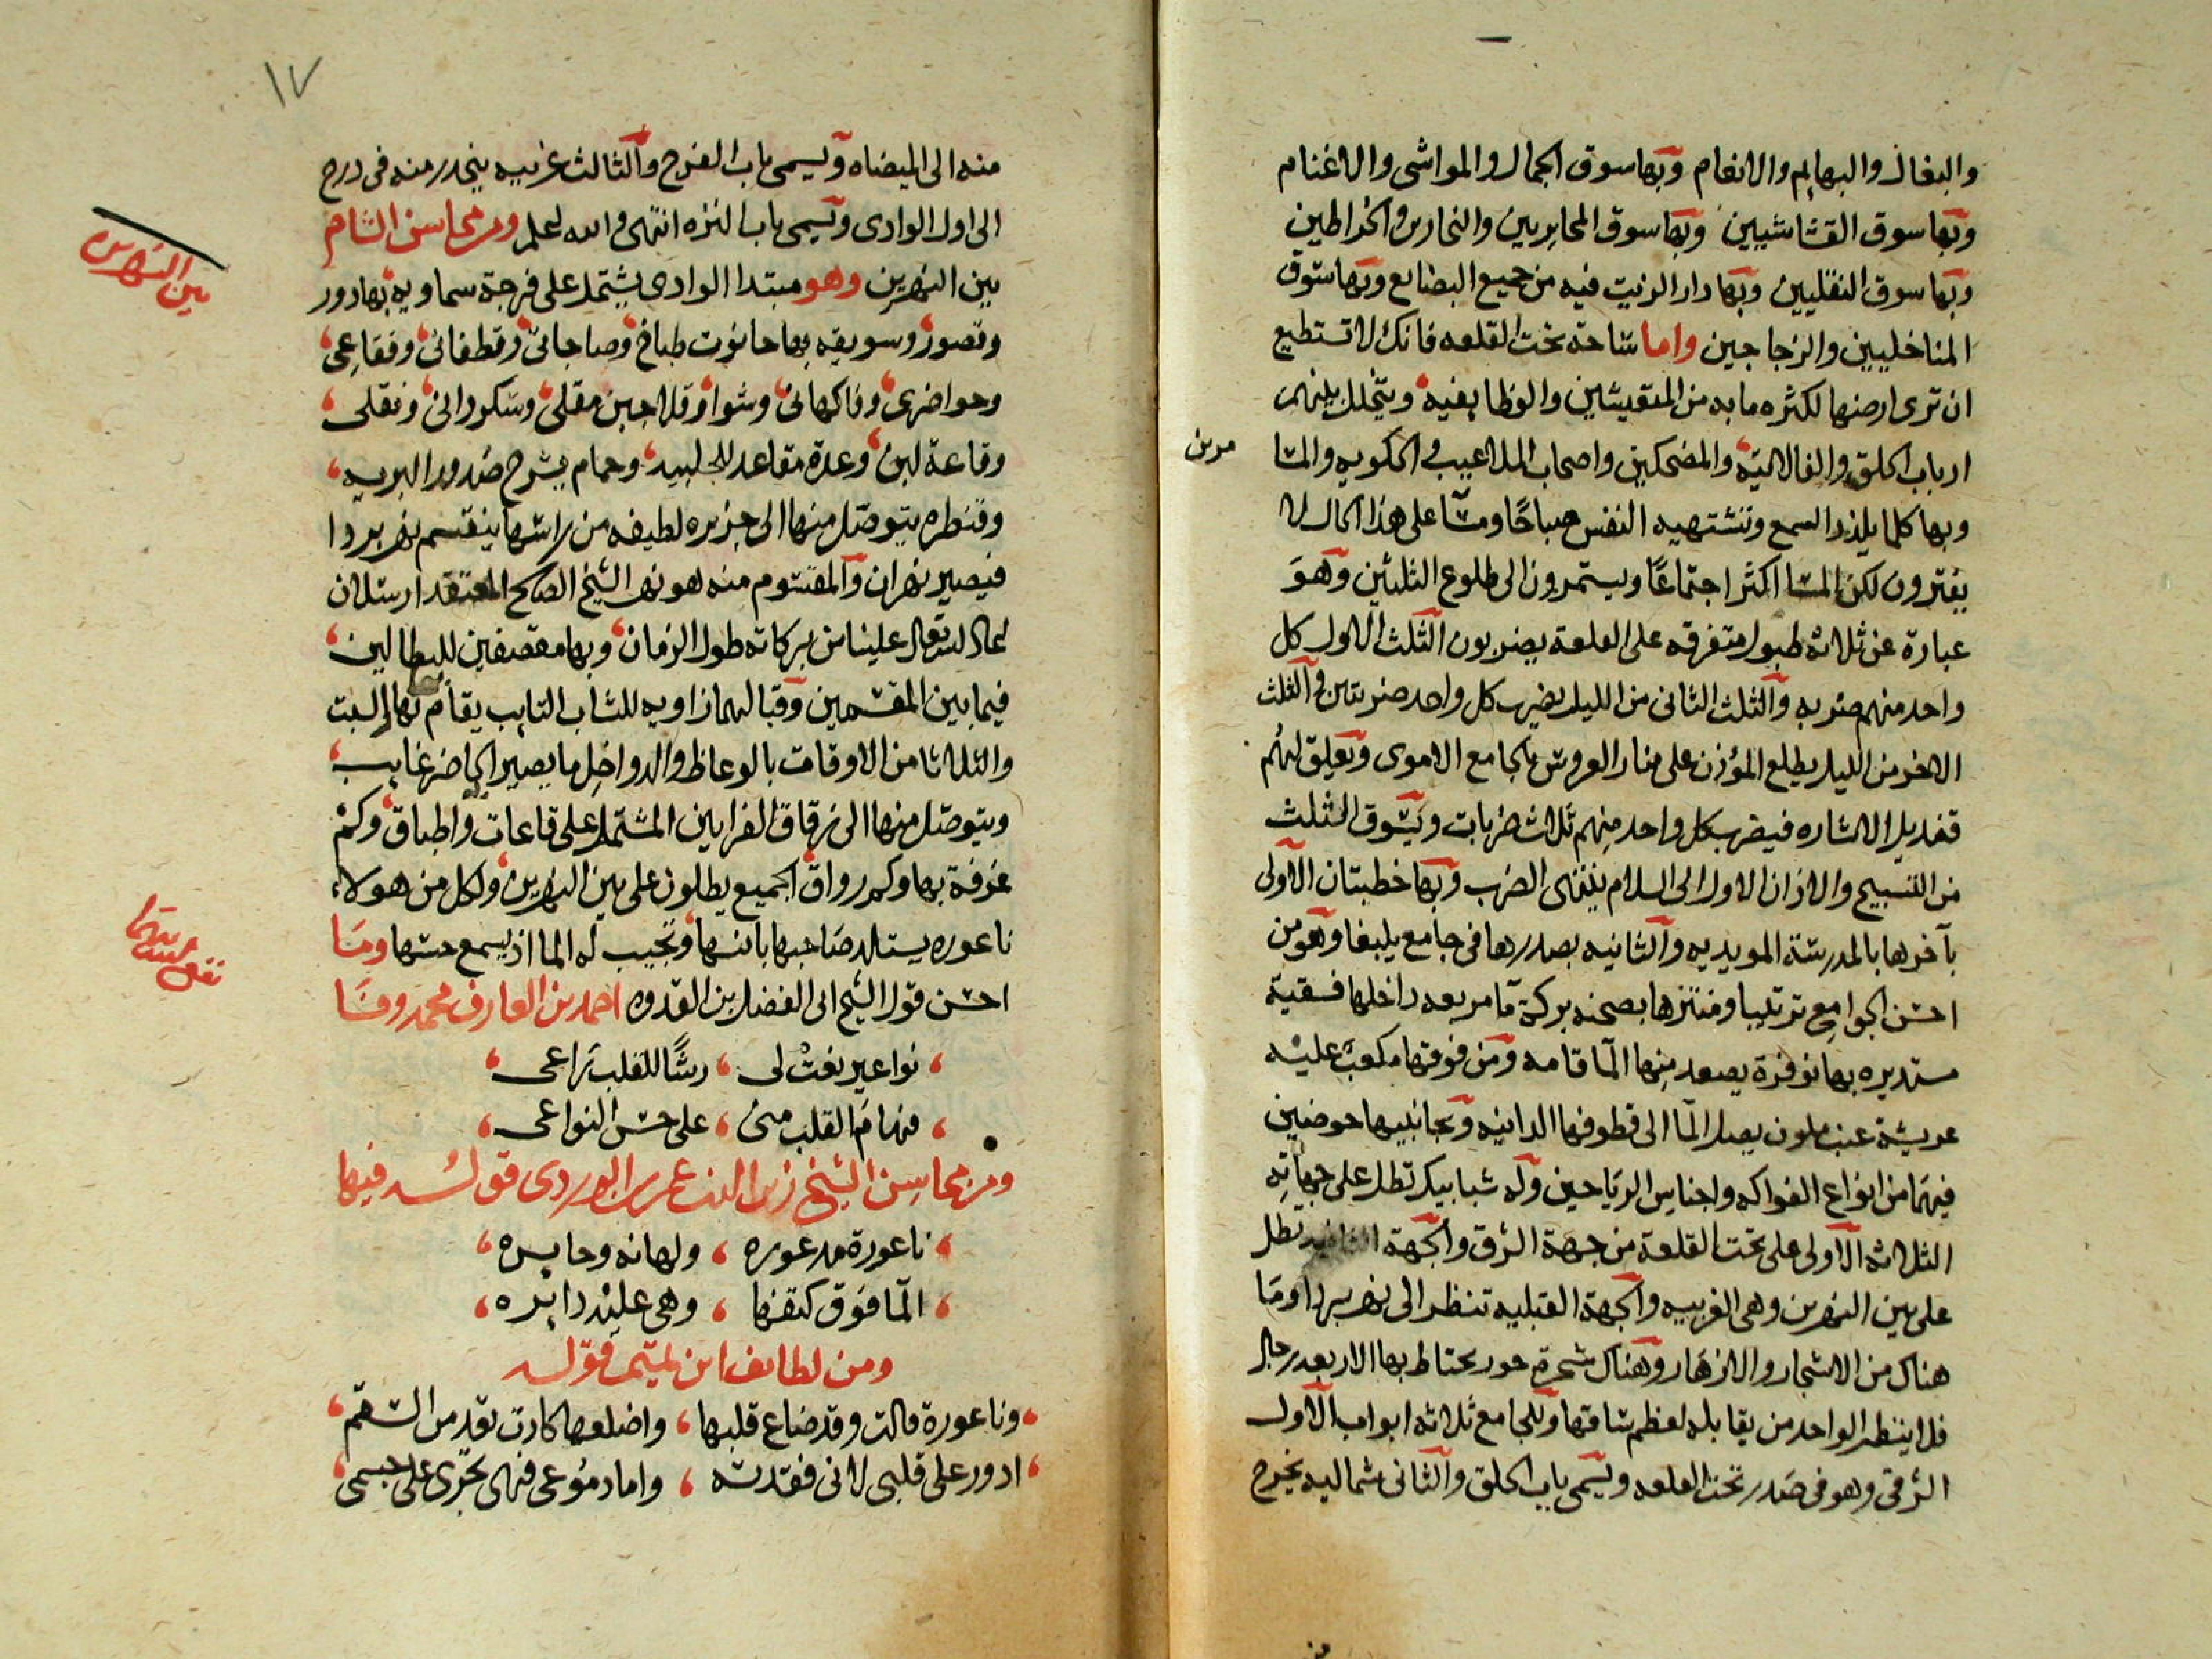 والبغال والبهايم والانعام وبها سوق الجمال والمواشى والاغنام
وبها سوق القشاشيين وبها سوق المحايريين والنحارين والخراطين
وبها سوق النقليين وبها دار الزيت فيه من جميع البضايع وبها سوق
المناخليين والزجاجين واما ساحة تحت القلعه فانك لا تستطيع
ان ترى ارضها لكثره ما به من المتعيشين والوظايفيه ويتخلل بينهم
ارباب الحلق والفالاتيه والمضحكين واصحاب الملاعيب والحكويه والمسا
مرين
وبها كلما يلذ للسمع وتشتهيه النفس صباحًا ومسًا على هذا الحال لا
يفترون لكن المسا اكثر اجتماعًا ويستمرون الى طلوع الثلثين وهو
عبارة عن ثلاثه طبول متفرقه على القلعة يضربون الثلث الاول كل
واحد منهم ضربه والثلث الثانى من الليل يضرب كل واحد ضربتين والثلث
الاخر من الليل يطلع المؤذن على منار العروس بالجامع الاموى ويعلق لهم
قنديل الاشاره فيضرب كل واحد منهم ثلاث ضربات ويسوق الثلث
من التسبيح والاذان الاول الى السلام ينتهى الضرب وبها خطبتان الاولى
بآخرها بالمدرسة المويديه والثانيه بصدرها فى جامع يلبغا وهو من
احسن الجوامع ترتيبا ومنتزها بصحنه بركة ما مربعه داخلها فسقية
مستديره بها نوفرة يصعد منها الما قامه ومن فوقها مكعب عليه
عريشة عنب ملون يصل الما الى قطوفها الدانيه وبجانبيها حوضين
فيهما من انواع الفواكه واجناس الرياحين وله شبابيك تطل على جهاته
الثلاثه الاولى على تحت القلعة من جهة الشرق والجهة الثانيه تطل
على بين النهرين وهى الغربيه والجهة القبليه تنظر الى نهر بردا وما
هناك من الاشجار والازهار وهناك شجرة حور يحتاط بها الاربعه رجال
فلا ينظر الواحد من يقابله لعظم ساقها وللجامع ثلاثه ابواب الاول
الشرقى وهو فى صدر تحت القلعه ويسمى باب الحلق والثانى شماليه يخرج
من
١٧
منه الى الميضاه ويسمى باب الفرج والثالث غربيه ينحدر منه فى درج
الى اول الوادى ويسمى باب النزه انتهى والله اعلم ومن محاسن الشام
بين النهرين
بين النهرين وهو مبتدا الوادى يشتمل على فرجة سماويه بها دور
وقصور وسويقه بها حانوت طباخ وصاجاتى وقطفانى وفقاعى
وحواضرى وفاكهانى وشوا وقلا جبن مقلى وسكردانى ونقلى
وقاعة لبن وعدة مقاعد للجلبيه وحمام يشرح صدور البريه
وقنطره يتوصل منها الى جزيره لطيفه من راسها ينقسم نهر بردا
فيصير نهران والمقسوم منه هو نهر الشيخ الصالح المعتقد ارسلان
اعاد الله تعالى علينا من بركاته طول الزمان وبها مقصفين للبطالين
فيما بين المقسمين وقبالهما زاويه للشاب التايب يقام بها السبت
والثلاثا من الاوقات بالوعاظ والدواخل ما يصير الحاضر غايب
ويتوصل منها الى زقاق الفرايين المشتمل على قاعات واطباق وكم
غرفة بها وكم رواق الجميع يطلون على بين النهرين ولكل من هولاء
ناعوره يستلذ صاحبها بانسها وتجيب له الما اذ يسمع حسها وما
احسن قول الشيخ ابى الفضل بن القدوه احمد بن العارف محمد وفا
نواعير نعت لى رشًا للقلب راعى
فنهام القلب منى على حس النواعى
ومن محاسن الشيخ زين الدين عمر بن الوردى قوله فيها
ناعورة مذعوره ولهانه وحايره
الما فوق كتفها وهى عليه دايره
ومن لطايف ابن تميم قوله
وناعورة قالت وقد ضاع قلبها واضلعها كادت تعد من السقم
ادور على قلبى لانى فقدته واما دموعى فهى تجرى على جسمى